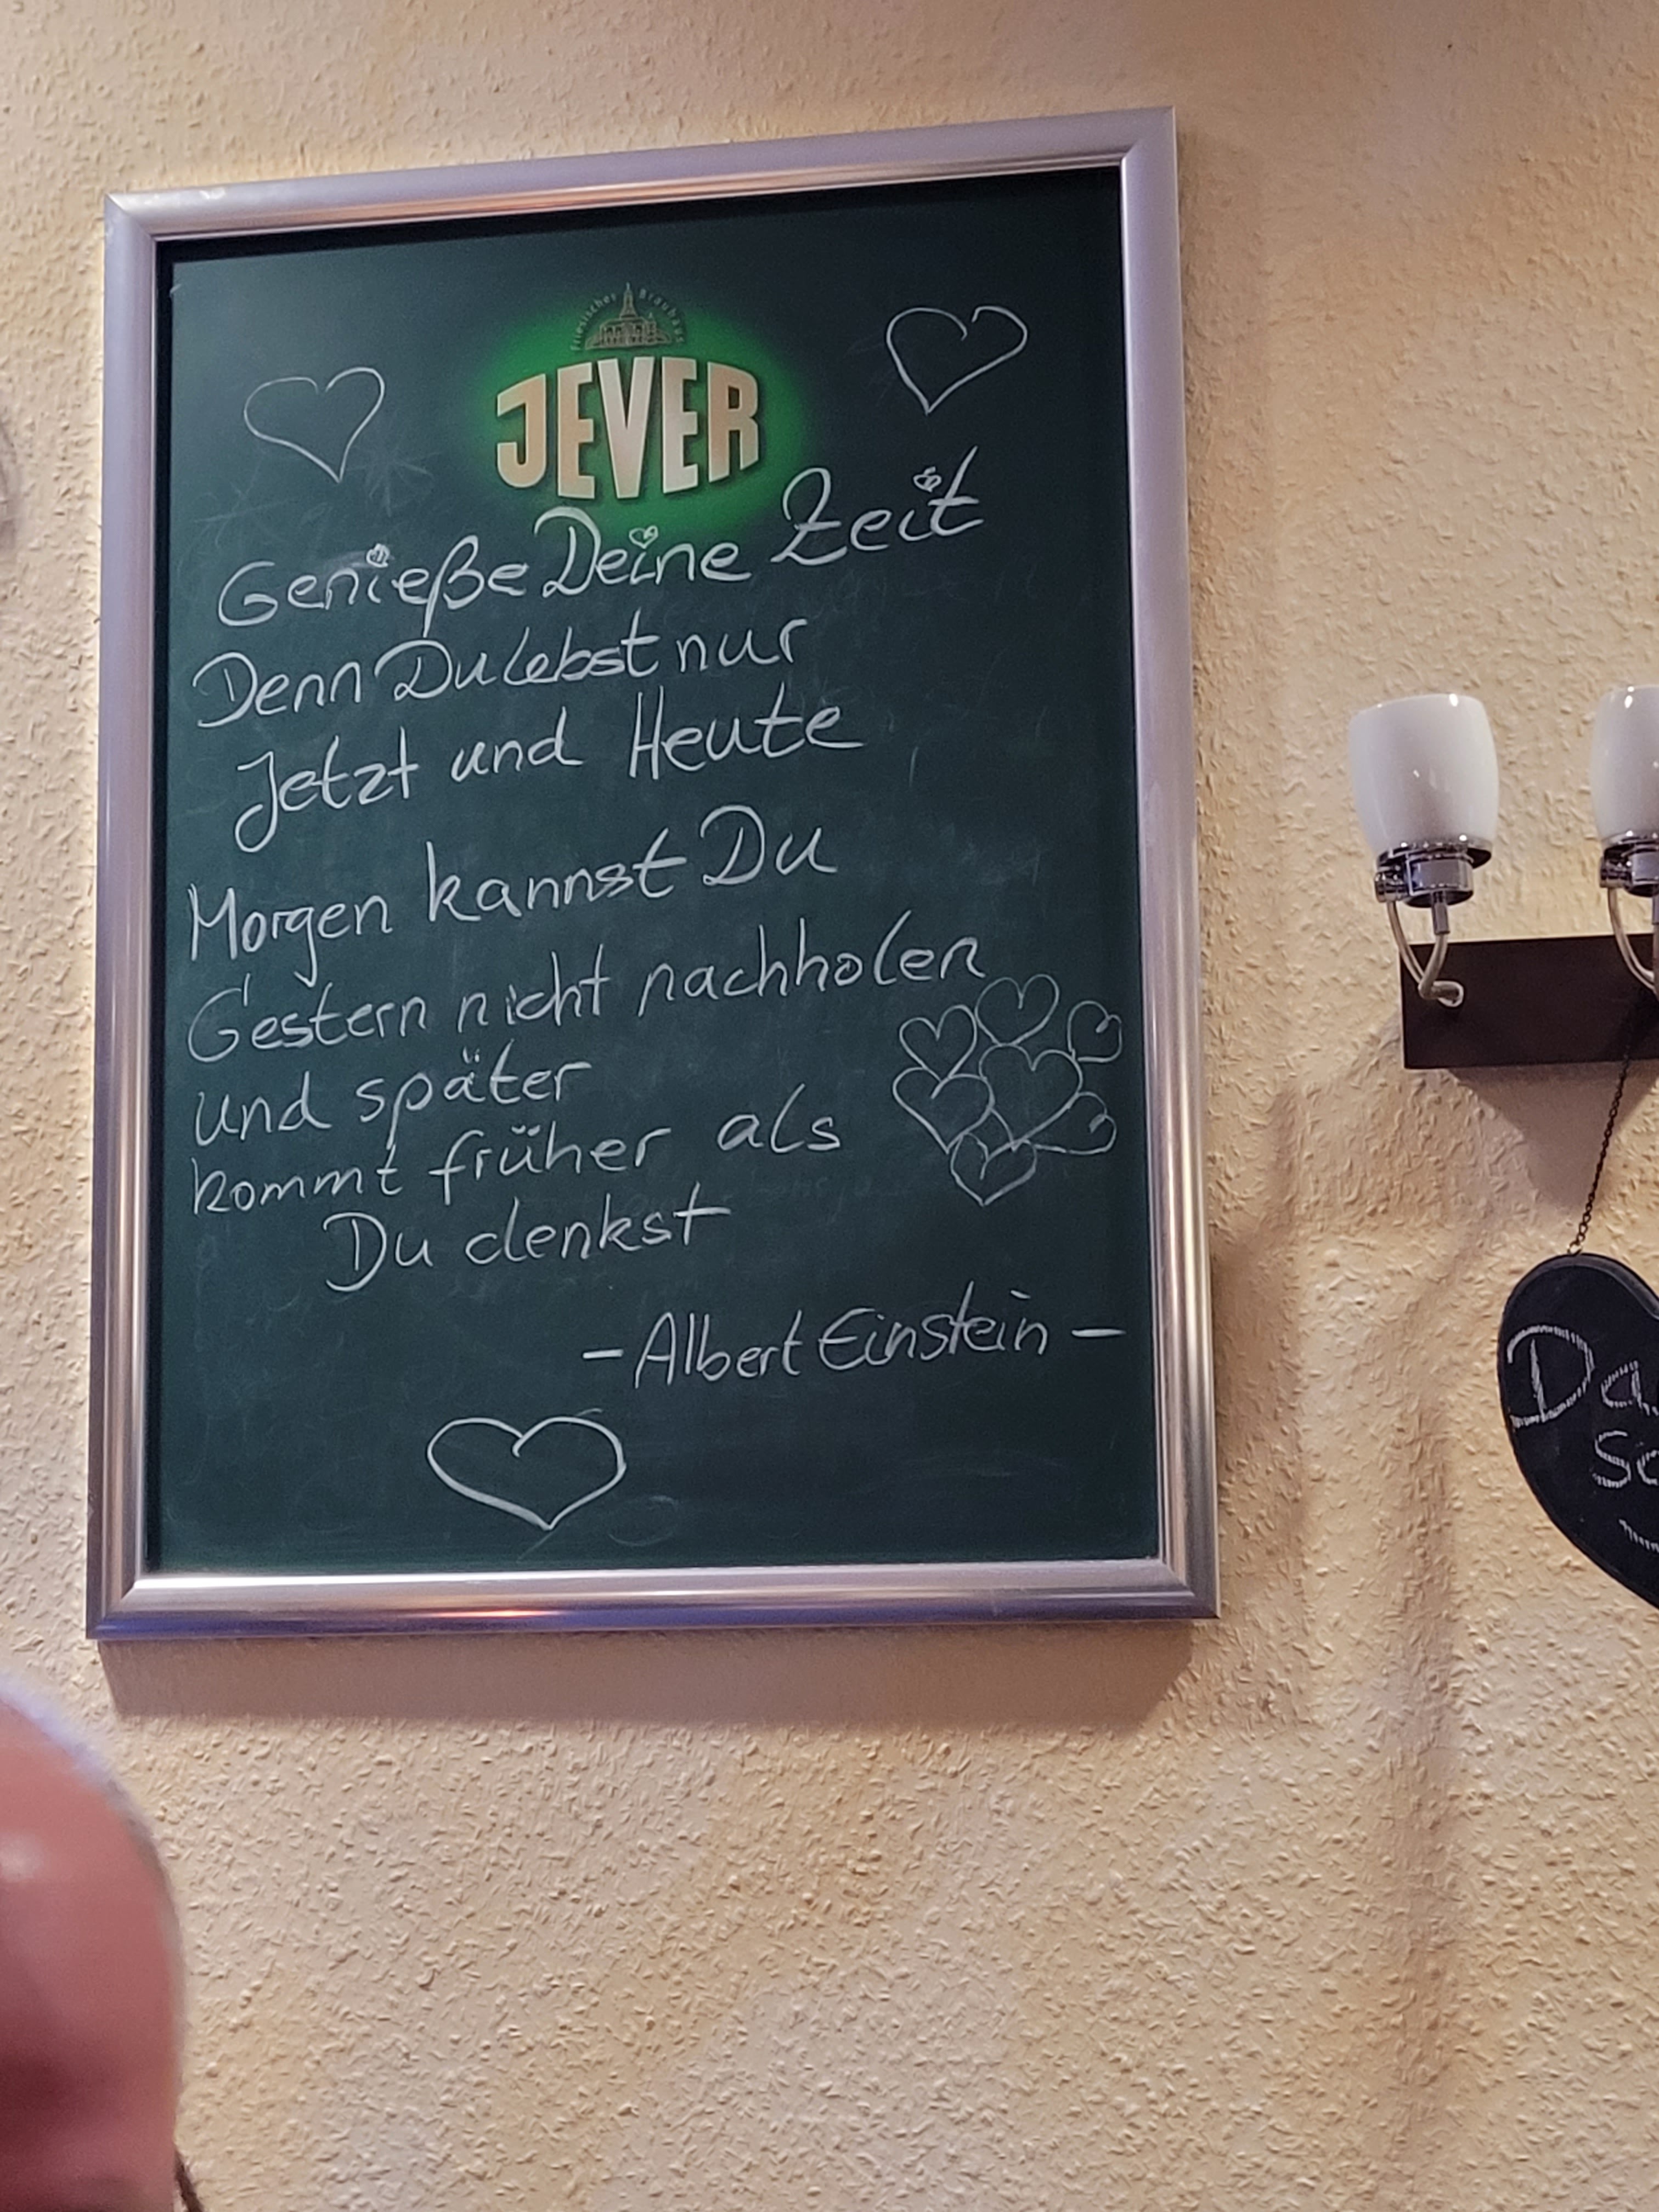 Friesisches Brauhaus
JEVER
Genieße Deine Zeit
Denn Du lebst nur
Jetzt und Heute
Morgen kannst Du
Gestern nicht nachholen
und später
kommt früher als
Du denkst
- Albert Einstein -